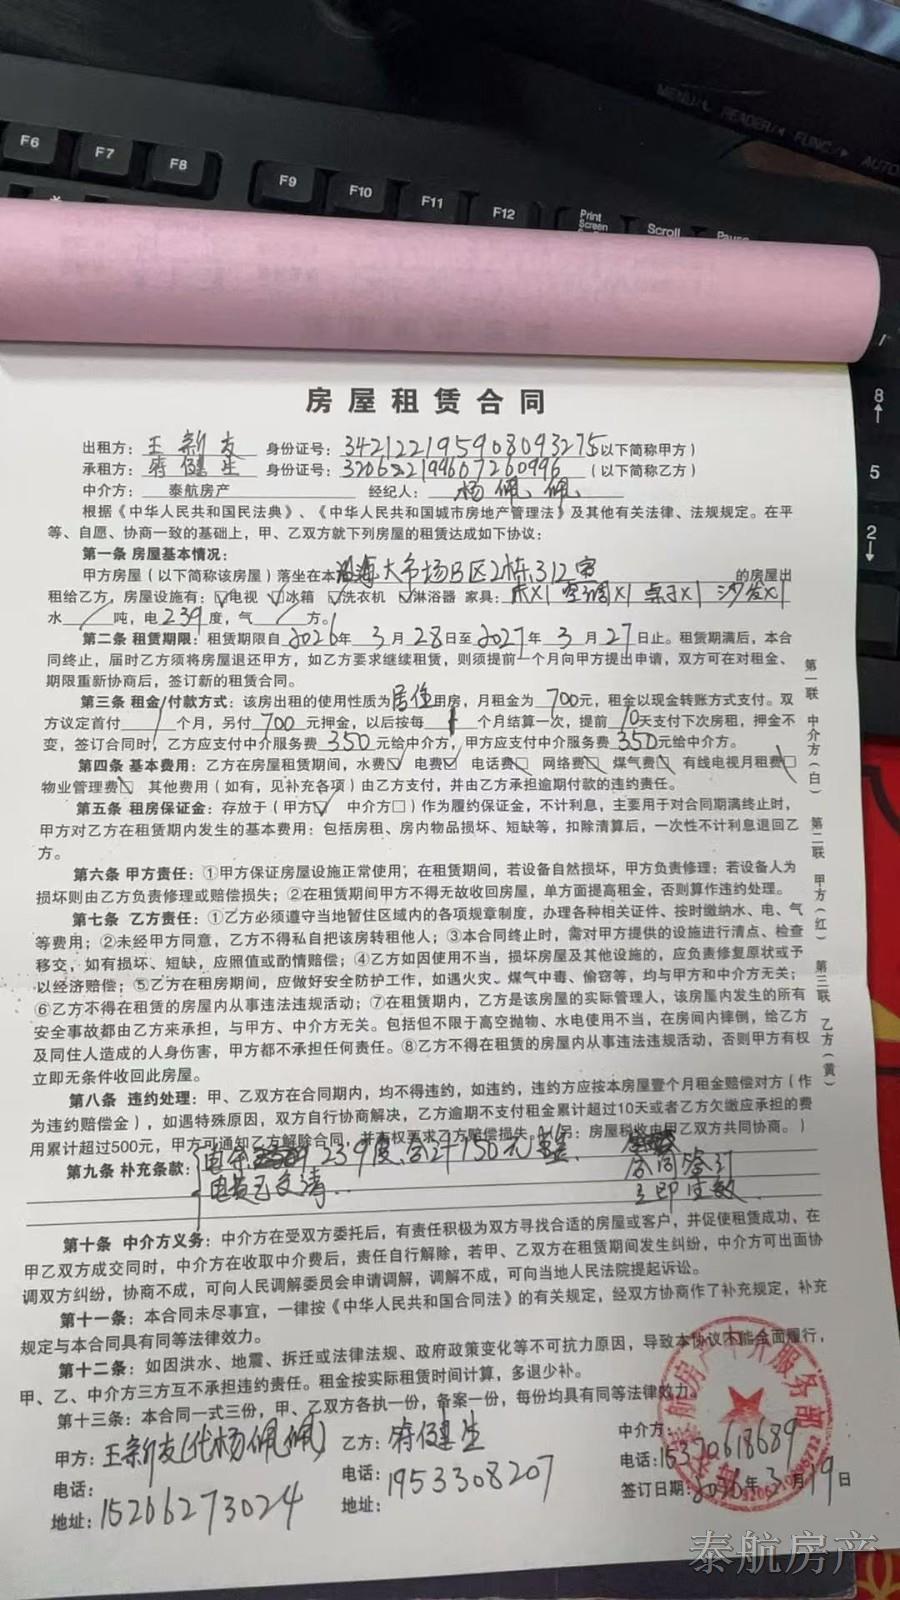 MENU/ READER/ FUNC/ AUTO
F6 F7 F8 F9 F10 F11 F12 Print Screen Scroll
8
5
2
房屋租赁合同
出租方：王新友 身份证号：342122195908093275（以下简称甲方）
承租方：蒋健生 身份证号：（以下简称乙方）
中介方：泰航房产 经纪人：杨佩佩
根据《中华人民共和国民法典》、《中华人民共和国城市房地产管理法》及其他有关法律、法规规定。在平
等、自愿、协商一致的基础上，甲、乙双方就下列房屋的租赁达成如下协议：
第一条 房屋基本情况：
甲方房屋（以下简称该房屋）落坐在本海大市场B区2栋312室的房屋出
租给乙方，房屋设施有：☑电视 ☑冰箱 ☑洗衣机 ☑淋浴器 家具：床X1 空调X1 桌子X1 沙发X1
水／吨，电239度，气／方。
第二条 租赁期限：租赁期限自2026年3月28日至2027年3月27日止。租赁期满后，本合
同终止，届时乙方须将房屋退还甲方，如乙方要求继续租赁，则须提前一个月向甲方提出申请，双方可在对租金、
期限重新协商后，签订新的租赁合同。
第三条 租金/付款方式：该房出租的使用性质为居住用房，月租金为700元，租金以现金转账方式支付。双
方议定首付1个月，另付700元押金，以后按每1个月结算一次，提前10天支付下次房租，押金不
变，签订合同时，乙方应支付中介服务费350元给中介方，甲方应支付中介服务费350元给中介方。
第四条 基本费用：乙方在房屋租赁期间，水费☑ 电费☑ 电话费□ 网络费□ 煤气费□ 有线电视月租费□
物业管理费□ 其他费用（如有，见补充各项）由乙方支付，并由乙方承担逾期付款的违约责任。
第五条 租房保证金：存放于（甲方☑ 中介方□）作为履约保证金，不计利息，主要用于对合同期满终止时，
甲方对乙方在租赁期内发生的基本费用：包括房租、房内物品损坏、短缺等，扣除清算后，一次性不计利息退回乙
方。
第六条 甲方责任：①甲方保证房屋设施正常使用，在租赁期间，若设备自然损坏，甲方负责修理；若设备人为
损坏则由乙方负责修理或赔偿损失；②在租赁期间甲方不得无故收回房屋，单方面提高租金，否则算作违约处理。
第七条 乙方责任：①乙方必须遵守当地暂住区域内的各项规章制度，办理各种相关证件、按时缴纳水、电、气
等费用；②未经甲方同意，乙方不得私自把该房转租他人；③本合同终止时，需对甲方提供的设施进行清点、检查
移交，如有损坏、短缺，应照值或酌情赔偿；④乙方如因使用不当，损坏房屋及其他设施的，应负责修复原状或予
以经济赔偿；⑤乙方在租房期间，应做好安全防护工作，如遇火灾、煤气中毒、偷窃等，均与甲方和中介方无关；
⑥乙方不得在租赁的房屋内从事违法违规活动；⑦在租赁期内，乙方是该房屋的实际管理人，该房屋内发生的所有
安全事故都由乙方来承担，与甲方、中介方无关。包括但不限于高空抛物、水电使用不当，在房间内摔倒，给乙方
及同住人造成的人身伤害，甲方都不承担任何责任。⑧乙方不得在租赁的房屋内从事违法违规活动，否则甲方有权
立即无条件收回此房屋。
第八条 违约处理：甲、乙双方在合同期内，均不得违约，如违约，违约方应按本房屋壹个月租金赔偿对方（作
为违约赔偿金），如遇特殊原因，双方自行协商解决，乙方逾期不支付租金累计超过10天或者乙方欠缴应承担的费
用累计超过500元，甲方可通知乙方解除合同，并有权要求乙方赔偿损失。（另：房屋税收由甲乙双方共同协商。）
第九条 补充条款：电余239度、合计150元 合同签订
电费已交清.. 立即生效.
第十条 中介方义务：中介方在受双方委托后，有责任积极为双方寻找合适的房屋或客户，并促使租赁成功，在
甲乙双方成交同时，中介方在收取中介费后，责任自行解除，若甲、乙双方在租赁期间发生纠纷，中介方可出面协
调双方纠纷，协商不成，可向人民调解委员会申请调解，调解不成，可向当地人民法院提起诉讼。
第十一条：本合同未尽事宜，一律按《中华人民共和国合同法》的有关规定，经双方协商作了补充规定，补充
规定与本合同具有同等法律效力。
第十二条：如因洪水、地震、拆迁或法律法规、政府政策变化等不可抗力原因，导致本协议不能全面履行，
甲、乙、中介方三方互不承担违约责任。租金按实际租赁时间计算，多退少补。
第十三条：本合同一式三份，甲、乙双方各执一份，备案一份，每份均具有同等法律效力。
甲方：王新友(代杨佩佩) 乙方：蒋健生 中介方：
电话：15266273024 电话：1953308207 电话：15370618689
地址： 地址： 签订日期：2026年3月19日
第一联 中介方（白） 第二联 甲方（红） 第三联 乙方（黄）
泰航房产中介服务部
泰航房产